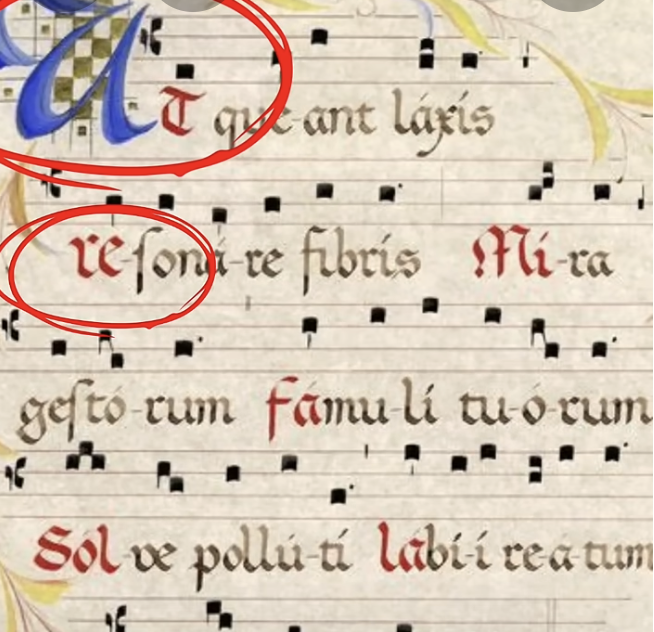 UT que-ant láxis
re-ſoná-re fibris Mi-ra
geſtó-rum fámu-li tu-ó-rum
Sol-ve pollú-ti lábi-i re-a-tum